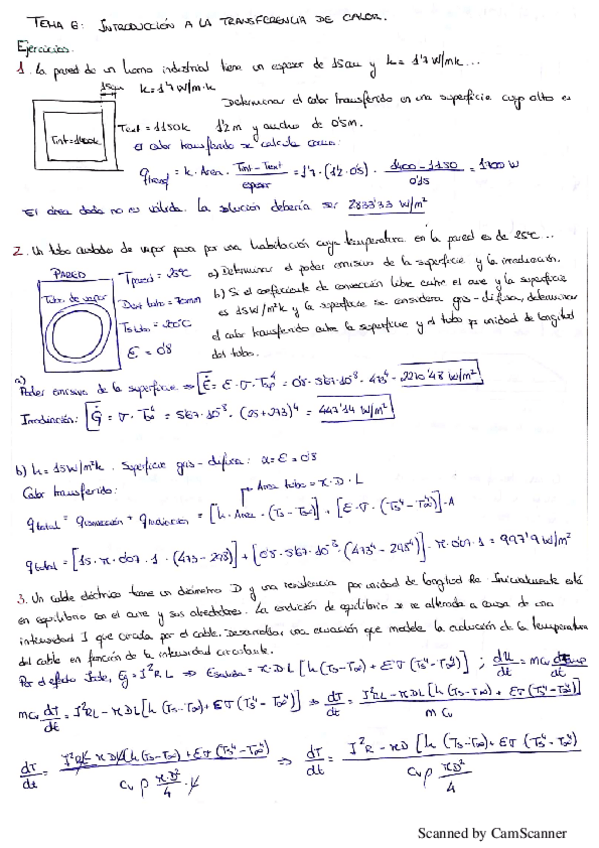 TEMA 6: INTRODUCCIÓN A LA TRANSFERENCIA DE CALOR.
Ejercicios.
1. La pared de un horno industrial tiene un espesor de 15cm y k = 1'7 W/mk...
15cm k=1'7 W/m·k
Determinar el calor transferido en una superficie cuyo alto es
Text = 1150k 1'2m y ancho de 0'5m.
Tint=1400k
El calor transferido se calcula como:
q transf = k · Area · (Tint - Text)/espesor = 1'7 · (1'2 · 0'5) · (1400 - 1150)/0'15 = 1700 W
El área dada no es válida. La solución debería ser 2833'33 W/m²
2. Un tubo aislado de vapor pasa por una habitación cuya temperatura en la pared es de 25ºC ...
PARED Tpared = 25ºC a) Determinar el poder emisivo de la superficie y la irradiación.
Tubo de vapor Dext tubo = 70mm b) Si el coeficiente de convección libre entre el aire y la superficie
Ts tubo = 200ºC es 15W/m²k y la superficie se considera gris-difusa, determinar
ε = 0'8 el calor transferido entre la superficie y el tubo por unidad de longitud
del tubo.
a)
Poder emisivo de la superficie ⇒ E = ε · σ · Tsup⁴ = 0'8 · 5'67·10⁻⁸ · 473⁴ = 2270'48 W/m²
Irradiación: G = σ · T∞⁴ = 5'67·10⁻⁸ · (25+273)⁴ = 447'14 W/m²
b) h = 15W/m²k . Superficie gris-difusa: α = ε = 0'8
Calor transferido: Area tubo = π · D · L
q total = q convección + q radiación = [h · Area · (Ts - T∞)] + [ε · σ · (Ts⁴ - T∞⁴)] · A
q total = [15 · π · 0'07 · 1 · (473 - 298)] + [0'8 · 5'67·10⁻⁸ · (473⁴ - 298⁴)] · π · 0'07 · 1 = 997'9 W/m²
3. Un cable eléctrico tiene un diámetro D y una resistencia por unidad de longitud Re. Inicialmente está
en equilibrio con el aire y sus alrededores. La condición de equilibrio se ve alterada a causa de una
intensidad I que circula por el cable. Desarrollar una ecuación que modele la evolución de la temperatura
del cable en función de la intensidad circulante.
Por el efecto Joule, Eg = I²RL ⇒ Esalida = π · DL [h (Ts - T∞) + εσ (Ts⁴ - T∞⁴)] ; dU/dt = mCv dTsup/dt
mCv dT/dt = I²RL - πDL [h (Ts - T∞) + εσ (Ts⁴ - T∞⁴)] ⇒ dT/dt = (I²RL - πDL [h (Ts - T∞) + εσ (Ts⁴ - T∞⁴)])/(m Cv)
dT/dt = (I²RL - πDL [h (Ts - T∞) + εσ (Ts⁴ - T∞⁴)])/(Cv ρ πD²/4 · L) ⇒ dT/dt = (I²R - πD [h (Ts - T∞) + εσ (Ts⁴ - T∞⁴)])/(Cv ρ πD²/4)
Scanned by CamScanner